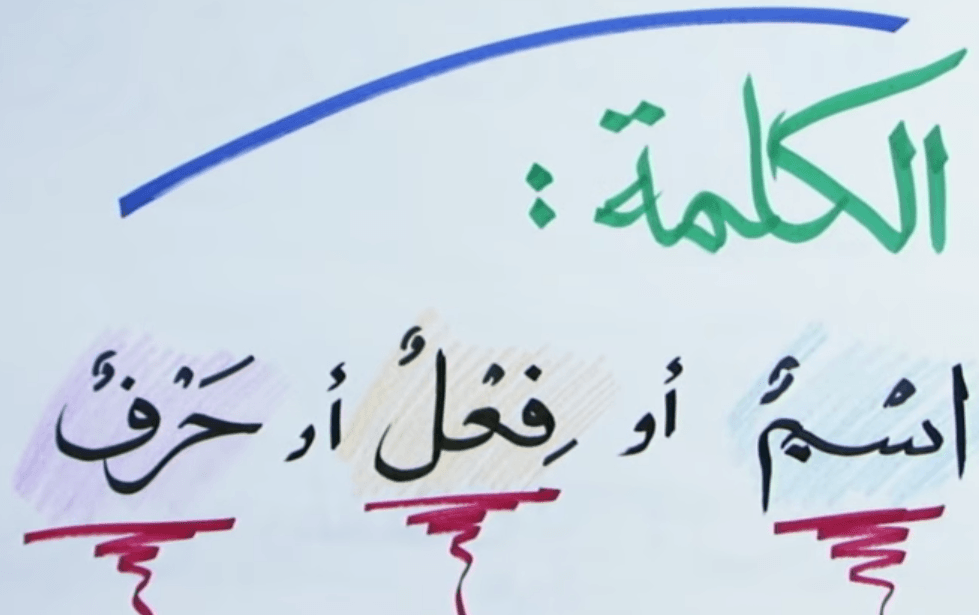 الكلمة :
اسْمٌ أو فِعْلٌ أو حَرْفٌ